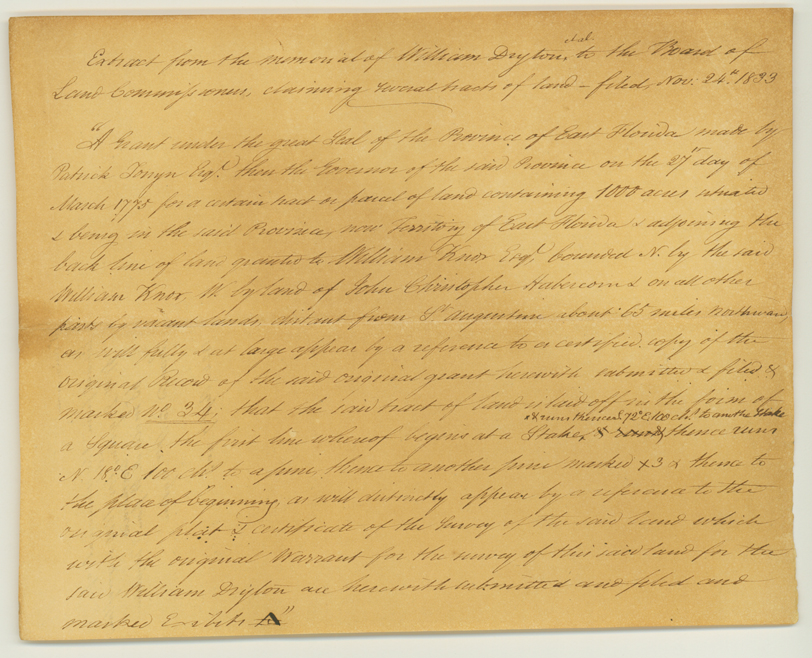 Extract from the memorial of William Dryton et al. to the Board of
Land Commissioners, claiming several tracts of land – filed, Nov. 24th 1833
"A Grant under the great Seal of the Province of East Florida made by
Patrick Tonyn Esqr. then the Governor of the said Province on the 27th day of
March 1775 for a certain tract or parcel of land containing 1000 acres situated
& being in the said Province, now Territory of East Florida & adjoining the
back line of land granted to William Knox Esqr. bounded N. by the said
William Knox, W. by land of John Christopher & on all other
parts by vacant lands distant from St. Augustine about 65 miles Northward,
as will fully & at large appear by a reference to a certified copy of the
original Record of the said original grant herewith submitted & filed &
marked No. 34; that the said tract of land is laid off in the form of
& runs thence 72° E 100 chs. to another Stake
a Square the first line whereof begins at a Stake, thence runs
N 18° E 100 chs. to a pine, thence to another pine marked x 3 x thence to
the place of beginning, as will distinctly appear by a reference to the
original plat & certificate of the Survey of the said land which
with the original Warrant for the survey of this said land for the
said William Dryton are herewith submitted and filed and
marked Exibits